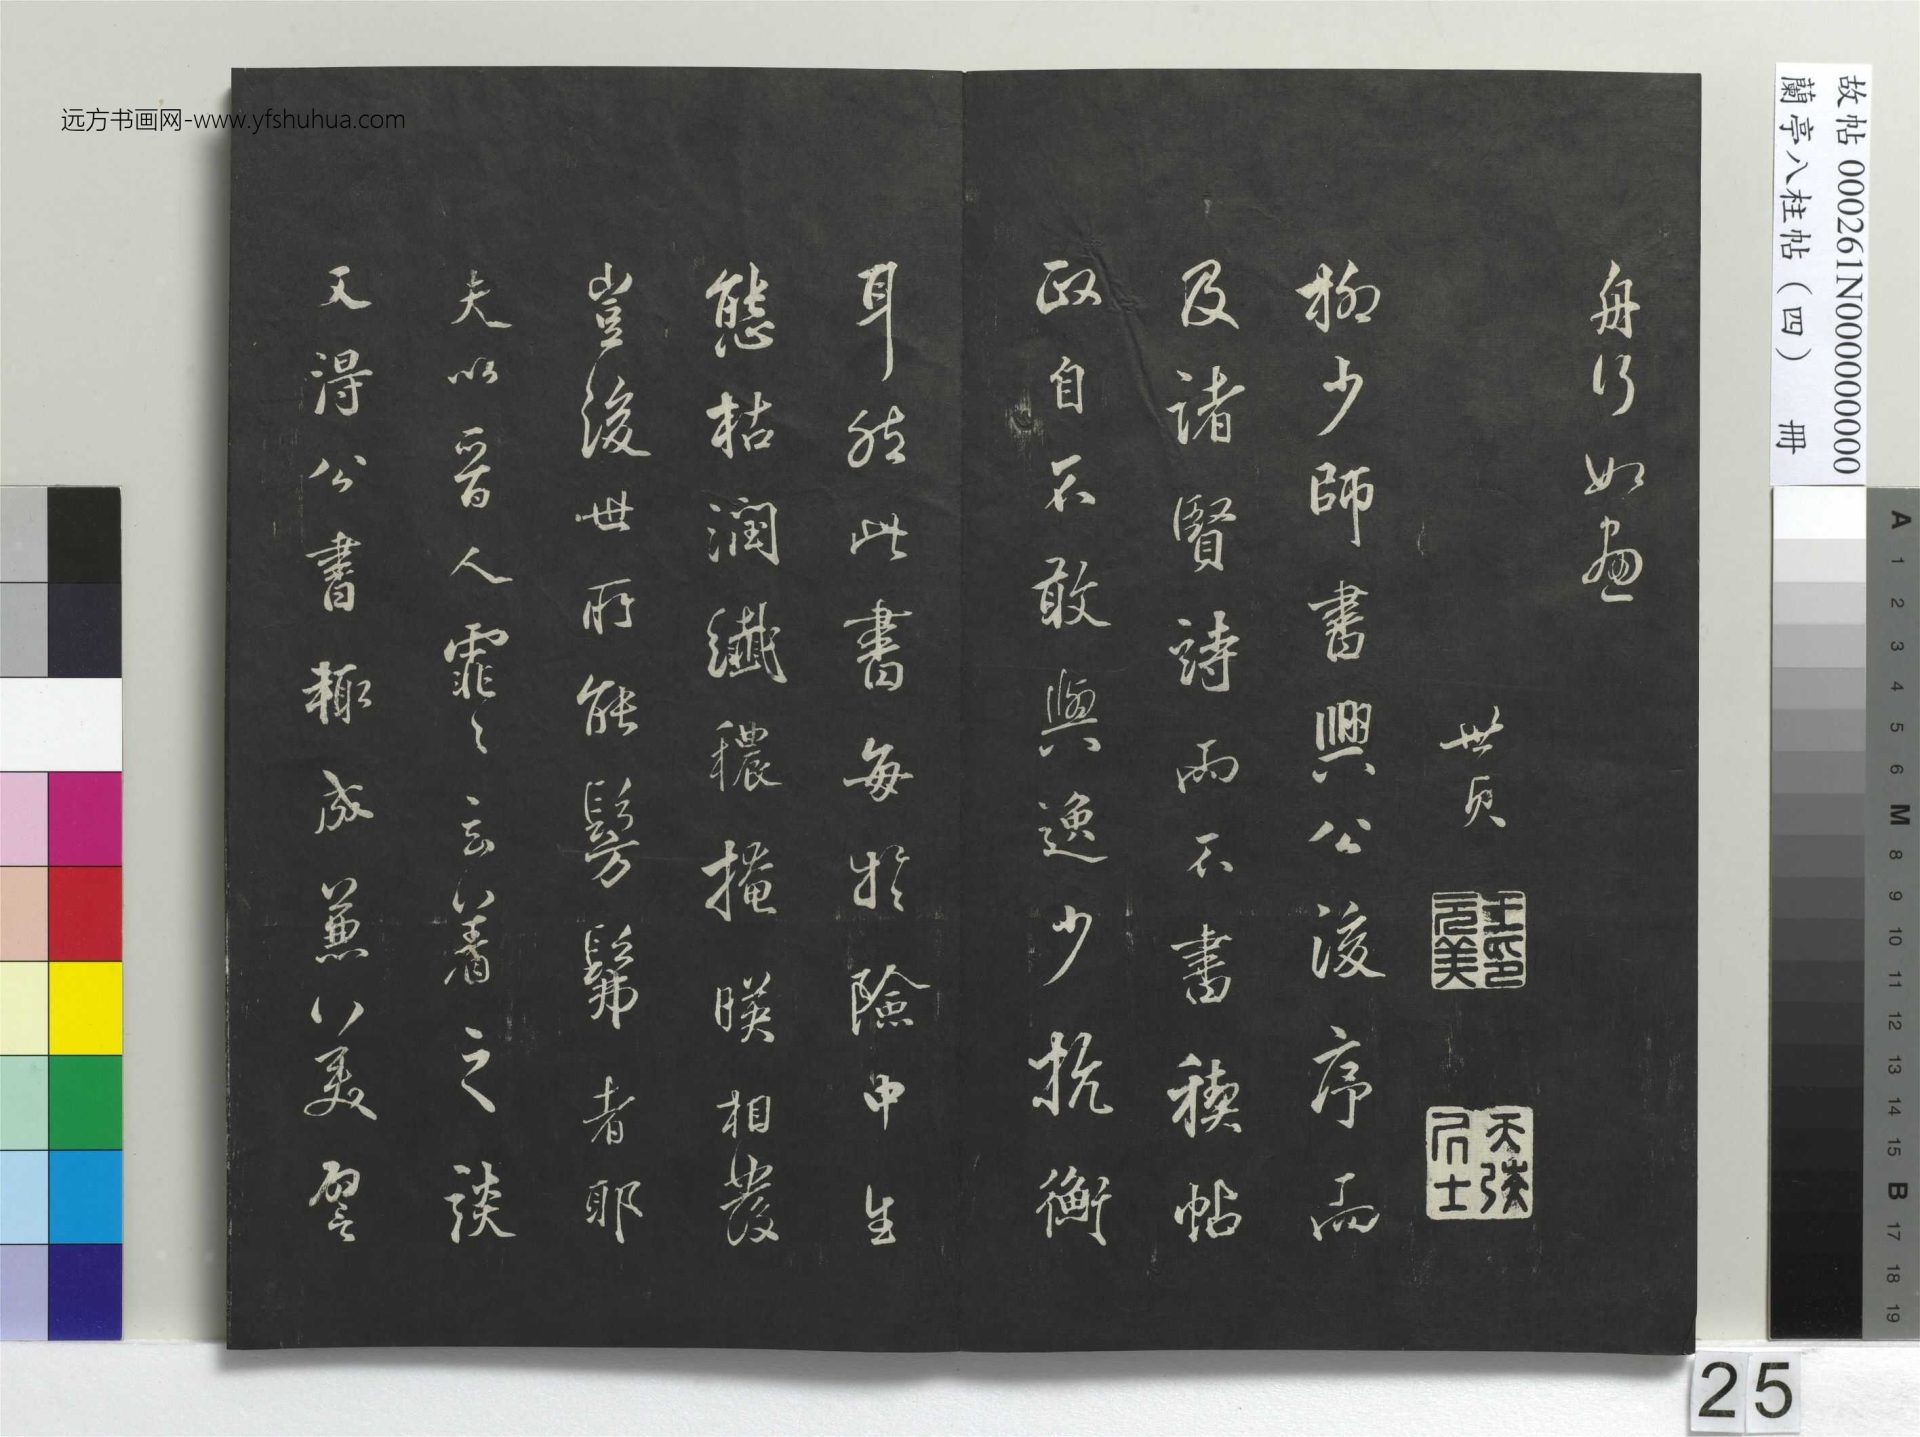 舟行如畫
世貞
王印元美
天弢居士
柳少師書興公後序而
及諸賢詩而不書稧帖
政自不敢與逸少抗衡
耳然此書每於險中生
態枯潤纖穠掩暎相發
豈後世所能髣髴者耶
夫以晉人霏霏玄著之談
又得公書輒成兼美
远方书画网-www.yfshuhua.com
故帖 000261N000000000
蘭亭八柱帖（四） 冊
A
1
2
3
4
5
6
M
8
9
10
11
12
13
14
15
B
17
18
19
25